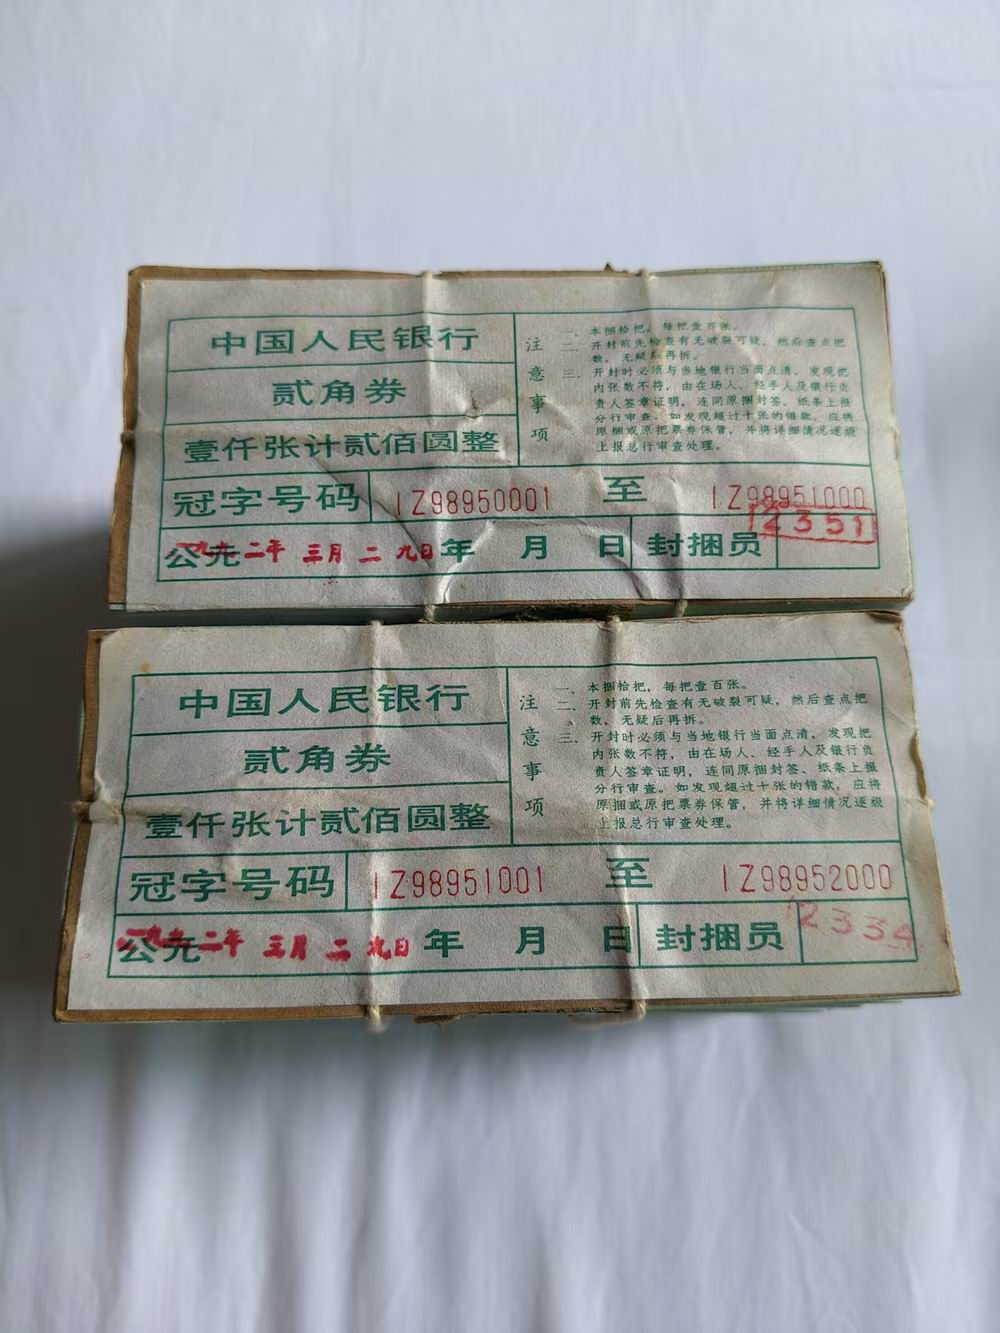 中国人民银行
贰角券
壹仟张计贰佰圆整
注意事项
一、本捆拾把，每把壹百张。
二、开封前先检查有无破裂可疑，然后查点把
数，无疑后再拆。
三、开封时必须与当地银行当面点清，发现把
内张数不符，由在场人、经手人及银行负
责人签章证明，连同原捆封签、纸条上报
分行审查。如发现超过十张的错款，应将
原捆或原把票券保管，并将详细情况逐级
上报总行审查处理。
冠字号码 IZ98950001 至 IZ98951000
公元 二年 三月 二 九日 年 月 日 封捆员 12351
中国人民银行
贰角券
壹仟张计贰佰圆整
注意事项
一、本捆拾把，每把壹百张。
二、开封前先检查有无破裂可疑，然后查点把
数，无疑后再拆。
三、开封时必须与当地银行当面点清，发现把
内张数不符，由在场人、经手人及银行负
责人签章证明，连同原捆封签、纸条上报
分行审查。如发现超过十张的错款，应将
原捆或原把票券保管，并将详细情况逐级
上报总行审查处理。
冠字号码 IZ98951001 至 IZ98952000
公元 二年 三月 二 九日 年 月 日 封捆员 12334